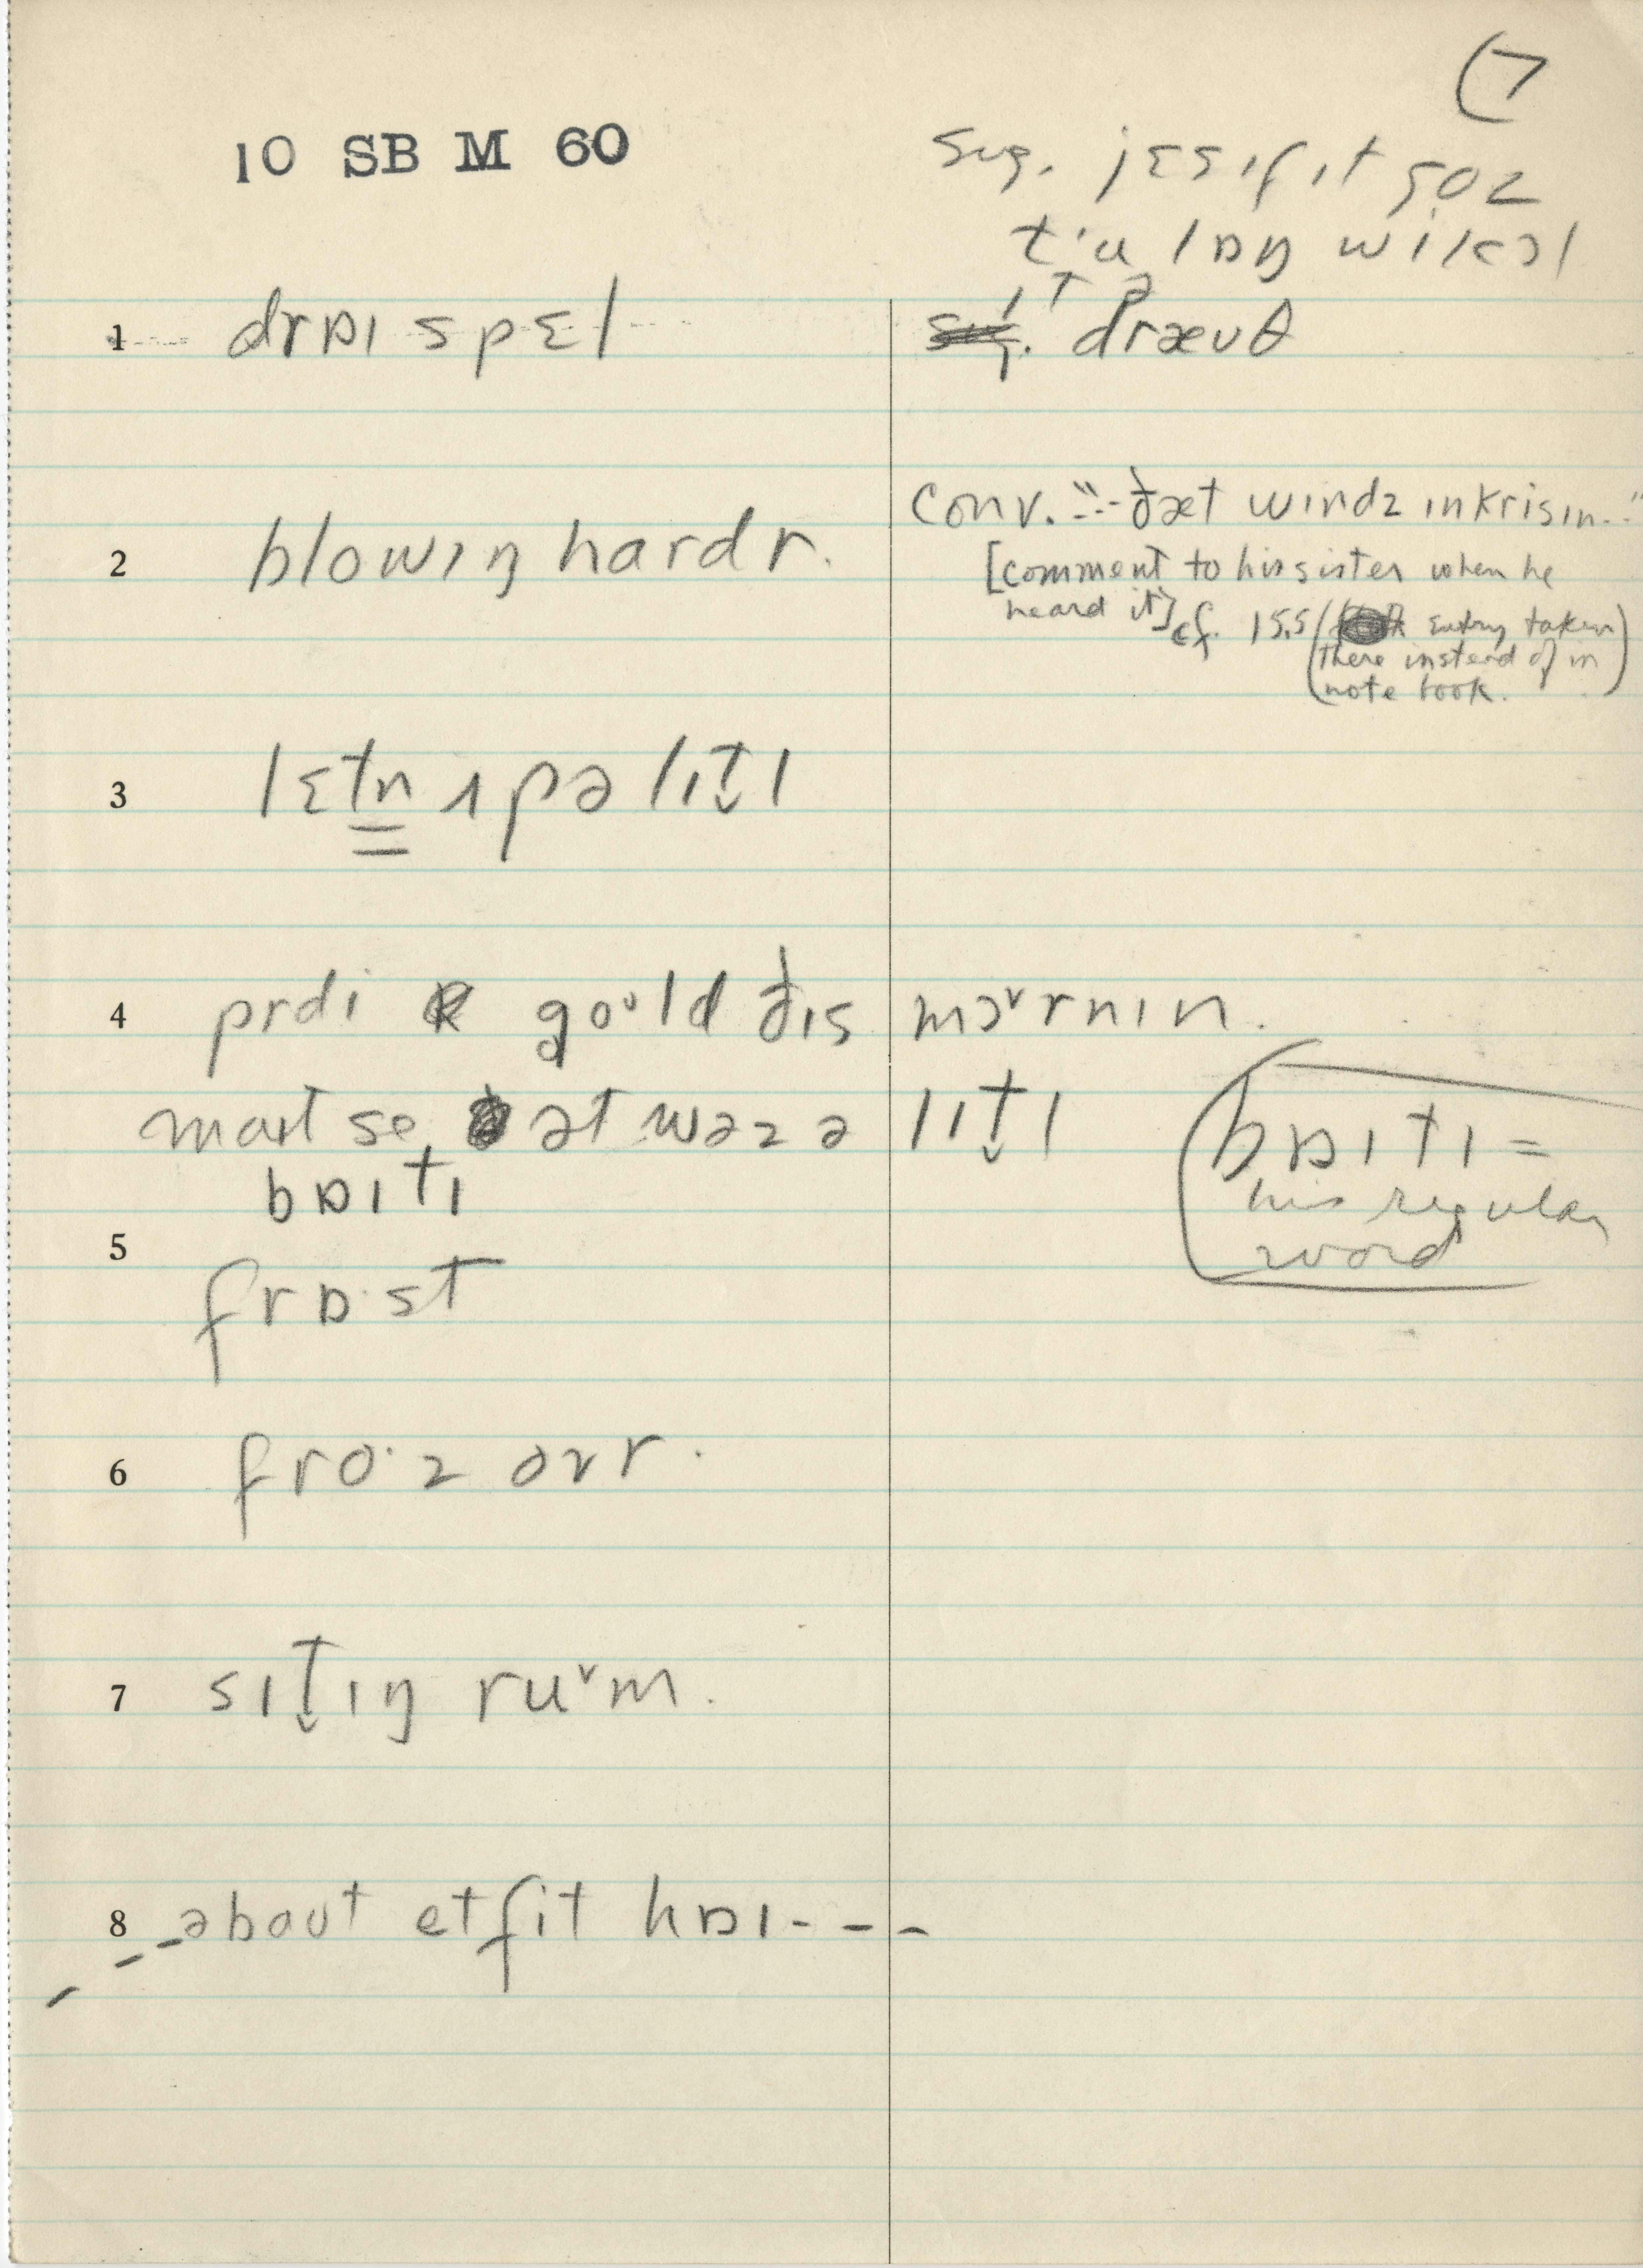 (7
10 SB M 60
sug. jɛs ɪf ɪt goz
t'u lɒŋ wi kɔl
ɪt ə
1 drɒɪ spɛl
dræuθ
2 blowɪŋ hardr.
Conv. "--- ðæt wɪndz ɪnkrisɪn.."
[comment to his sister when he
heard it] cf. 15.5 ( entry taken
there instead of in
note book.)
3 lɛtn ʌp ə lɪt̬l
4 prdi goᶸld ðɪs mɔ˅rnɪn.
maɪt se, ət wəz ə lɪt̬l
bɒɪtɪ
(bɒɪtɪ =
his regular
word
5 frɒ·st
6 fro·z ovr.
7 sɪt̬ɪŋ ru˅m.
8 ---əbaut et fit hɒɪ---